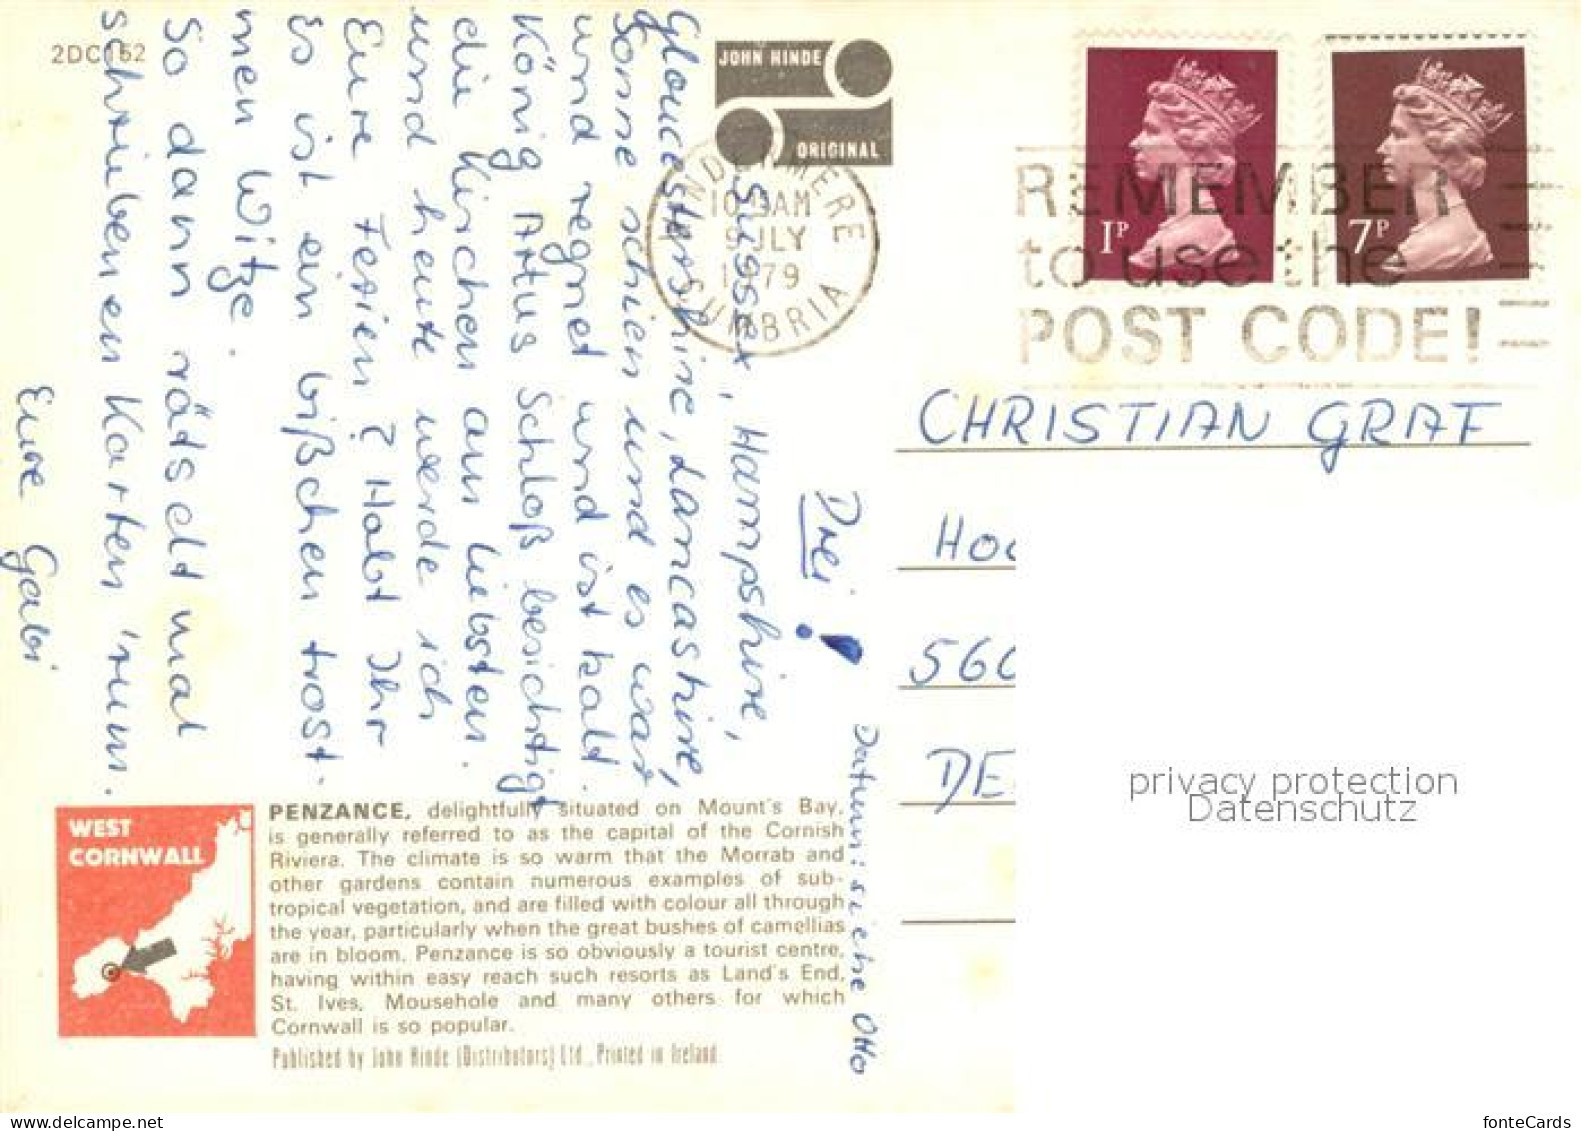 2DC152
JOHN HINDE
ORIGINAL
WINDERMERE
10 - AM
9 JLY
1979
CUMBRIA
1P
7P
REMEMBER
to use the
POST CODE!
Drei!
Datum: siehe Otto
Sussex, Hampshire,
Gloucestershire, Lancashire,
Sonne schien und es war
und regnet und ist kalt.
König Artus Schloß besichtigt
die Kirschen am liebsten.
und heute werde ich
Eure Ferien? Habt Ihr
Es ist ein bißchen trost.
men Witze.
So dann rätselt mal
schrieben en Karten 'rum.
Eure Gabi
CHRISTIAN GRAF
HOC
560
DE
WEST
CORNWALL
PENZANCE, delightfully situated on Mount's Bay,
is generally referred to as the capital of the Cornish
Riviera. The climate is so warm that the Morrab and
other gardens contain numerous examples of sub-
tropical vegetation, and are filled with colour all through
the year, particularly when the great bushes of camellias
are in bloom. Penzance is so obviously a tourist centre,
having within easy reach such resorts as Land's End,
St. Ives, Mousehole and many others for which
Cornwall is so popular.
Published by John Hinde (Distributors) Ltd., Printed in Ireland
privacy protection
Datenschutz
fonteCards